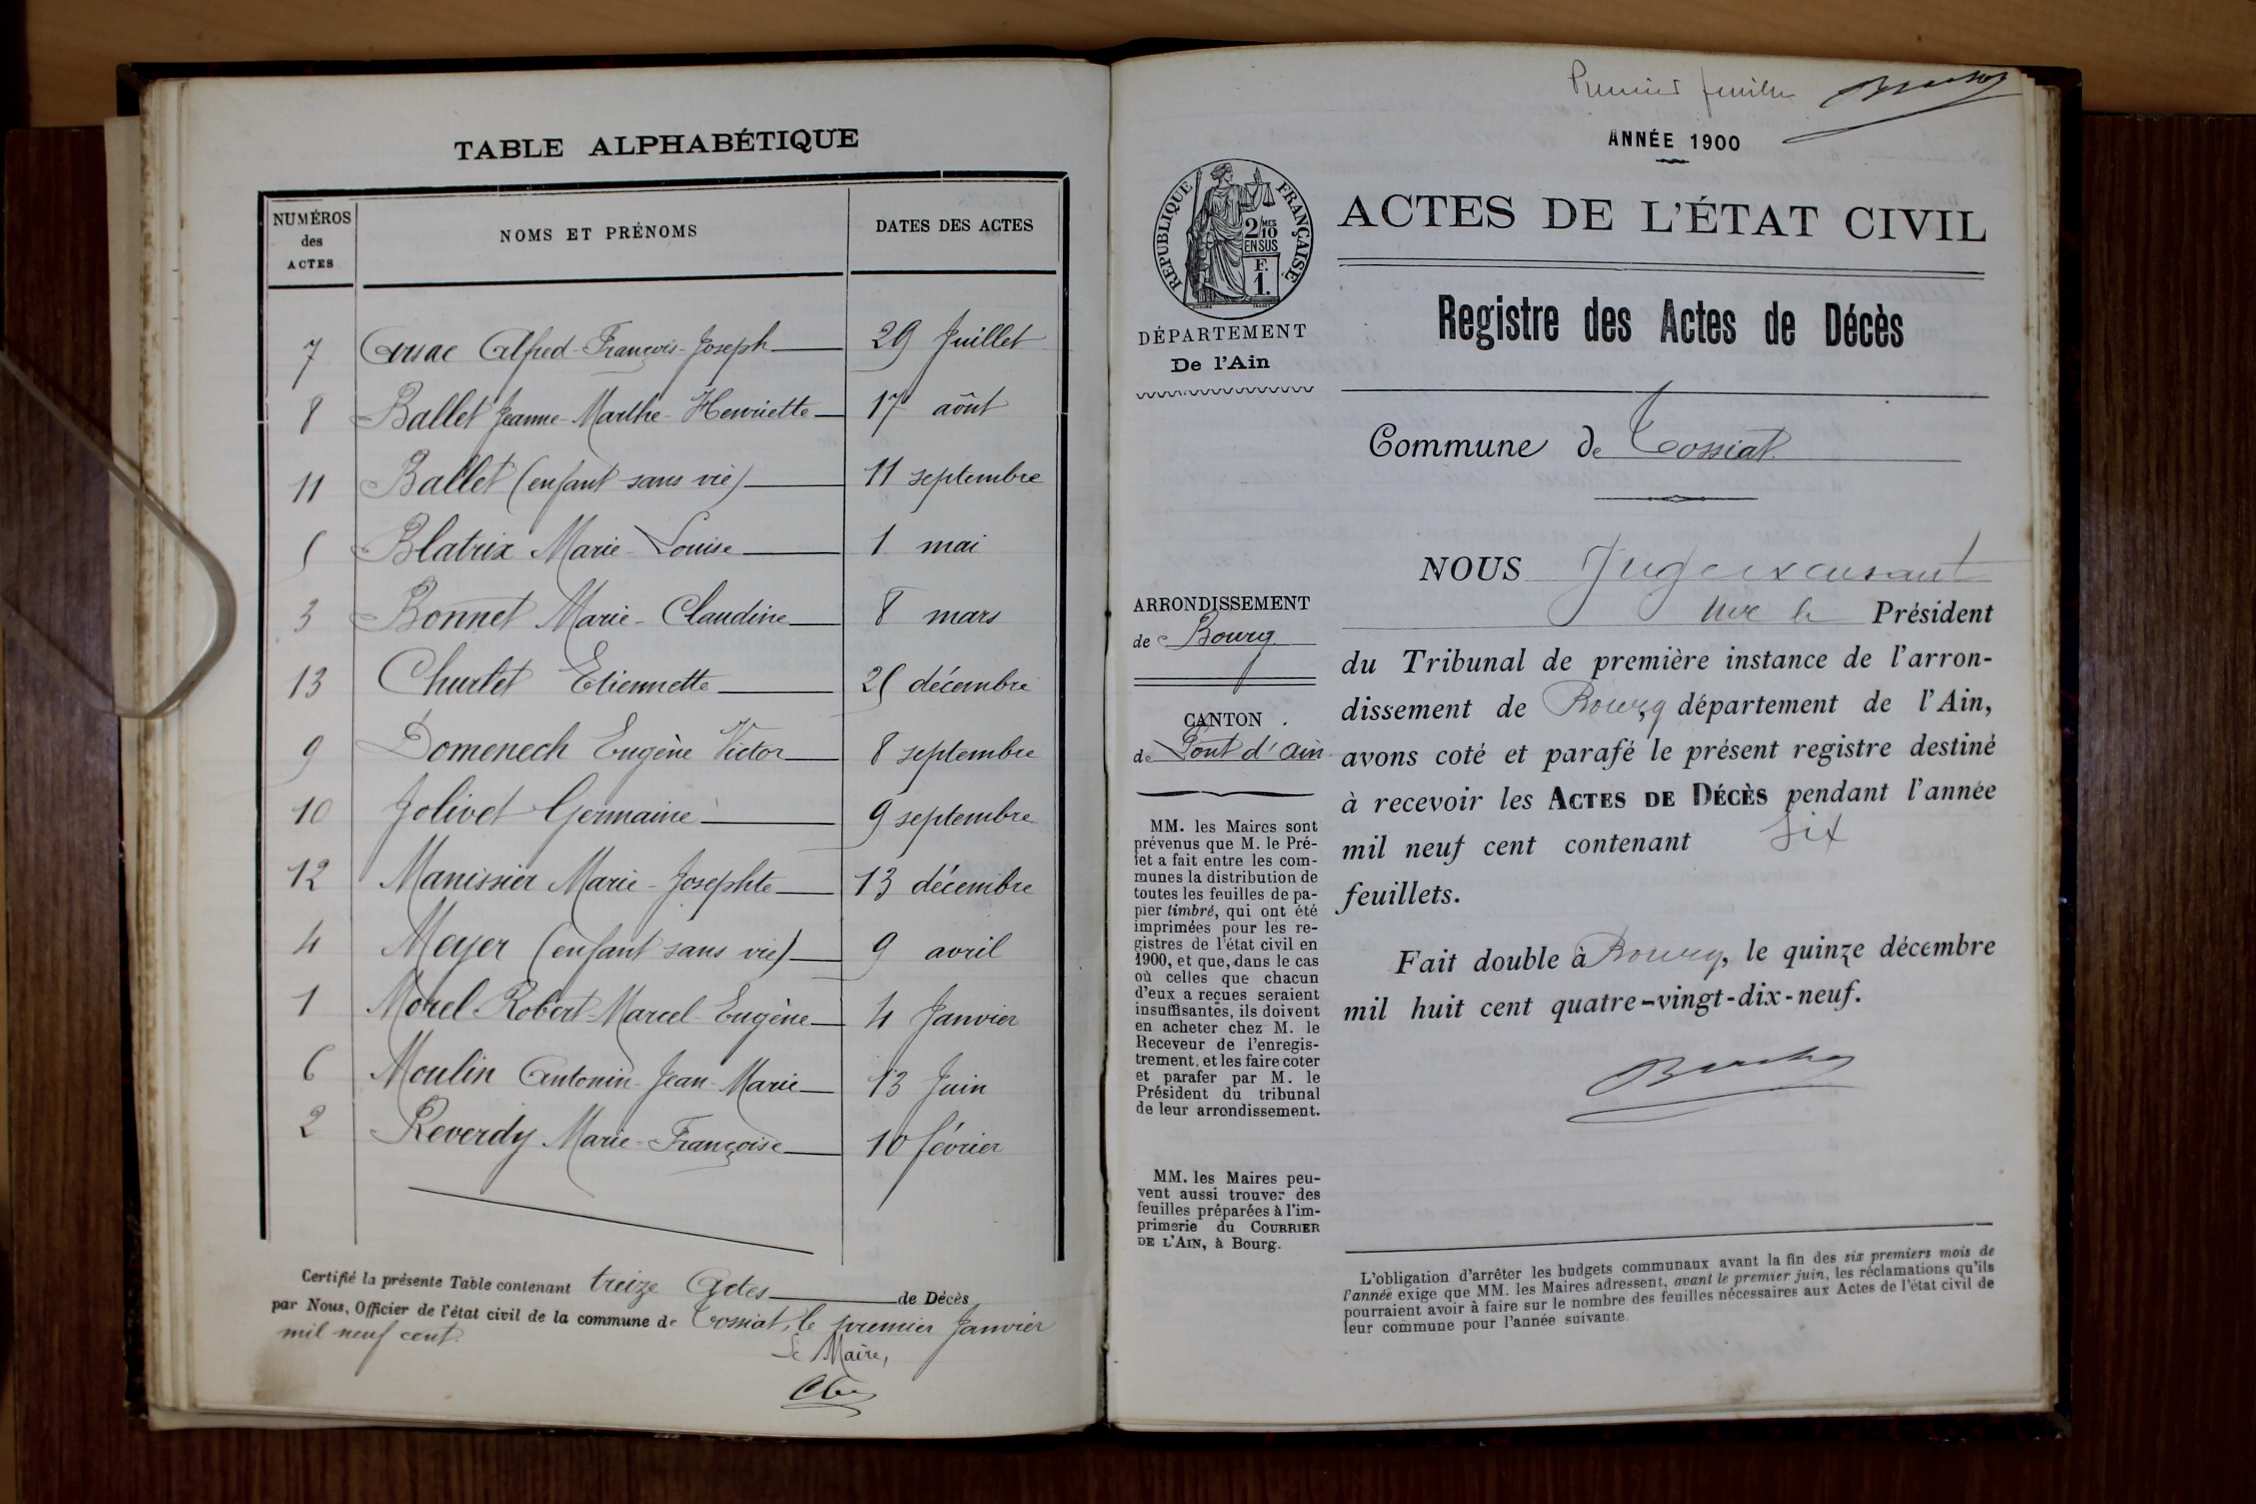 TABLE ALPHABÉTIQUE
NUMÉROS des ACTES
NOMS ET PRÉNOMS
DATES DES ACTES
7 Arsac Alfred-François-Joseph 29 Juillet
8 Ballet Jeanne-Marthe-Henriette 17 août
11 Ballet (enfant sans vie) 11 septembre
5 Blatrix Marie-Louise 1 mai
3 Bonnet Marie-Claudine 8 mars
13 Churlet Etiennette 25 décembre
9 Domenech Eugène Victor 8 septembre
10 Jolivet Germaine 9 septembre
12 Manissier Marie-Josephte 13 décembre
4 Meyer (enfant sans vie) 9 avril
1 Morel Robert-Marcel-Eugène 4 Janvier
6 Moulin Antonin-Jean-Marie 13 Juin
2 Reverdy Marie-Françoise 10 février
Certifié la présente Table contenant treize Actes de Décès
par Nous, Officier de l'état civil de la commune de Tossiat, le premier Janvier
mil neuf cent.
Le Maire,
Premier feuillet
ANNÉE 1900
RÉPUBLIQUE FRANÇAISE
2/MES 10
EN SUS
F.
1.
DÉPARTEMENT
De l'Ain
ACTES DE L'ÉTAT CIVIL
Registre des Actes de Décès
Commune de Tossiat
ARRONDISSEMENT
de Bourg
CANTON
de Pont d'Ain
MM. les Maires sont
prévenus que M. le Pré-
fet a fait entre les com-
munes la distribution de
toutes les feuilles de pa-
pier timbré, qui ont été
imprimées pour les re-
gistres de l'état civil en
1900, et que, dans le cas
où celles que chacun
d'eux a reçues seraient
insuffisantes, ils doivent
en acheter chez M. le
Receveur de l'enregis-
trement, et les faire coter
et parafer par M. le
Président du tribunal
de leur arrondissement.
MM. les Maires peu-
vent aussi trouver des
feuilles préparées à l'im-
primerie du COURRIER
DE L'AIN, à Bourg.
NOUS Juge
Président
du Tribunal de première instance de l'arron-
dissement de Bourg département de l'Ain,
avons coté et parafé le présent registre destiné
à recevoir les ACTES DE DÉCÈS pendant l'année
mil neuf cent contenant Six
feuillets.
Fait double à Bourg, le quinze décembre
mil huit cent quatre-vingt-dix-neuf.
L'obligation d'arrêter les budgets communaux avant la fin des six premiers mois de
l'année exige que MM. les Maires adressent, avant le premier juin, les réclamations qu'ils
pourraient avoir à faire sur le nombre des feuilles nécessaires aux Actes de l'état civil de
leur commune pour l'année suivante.